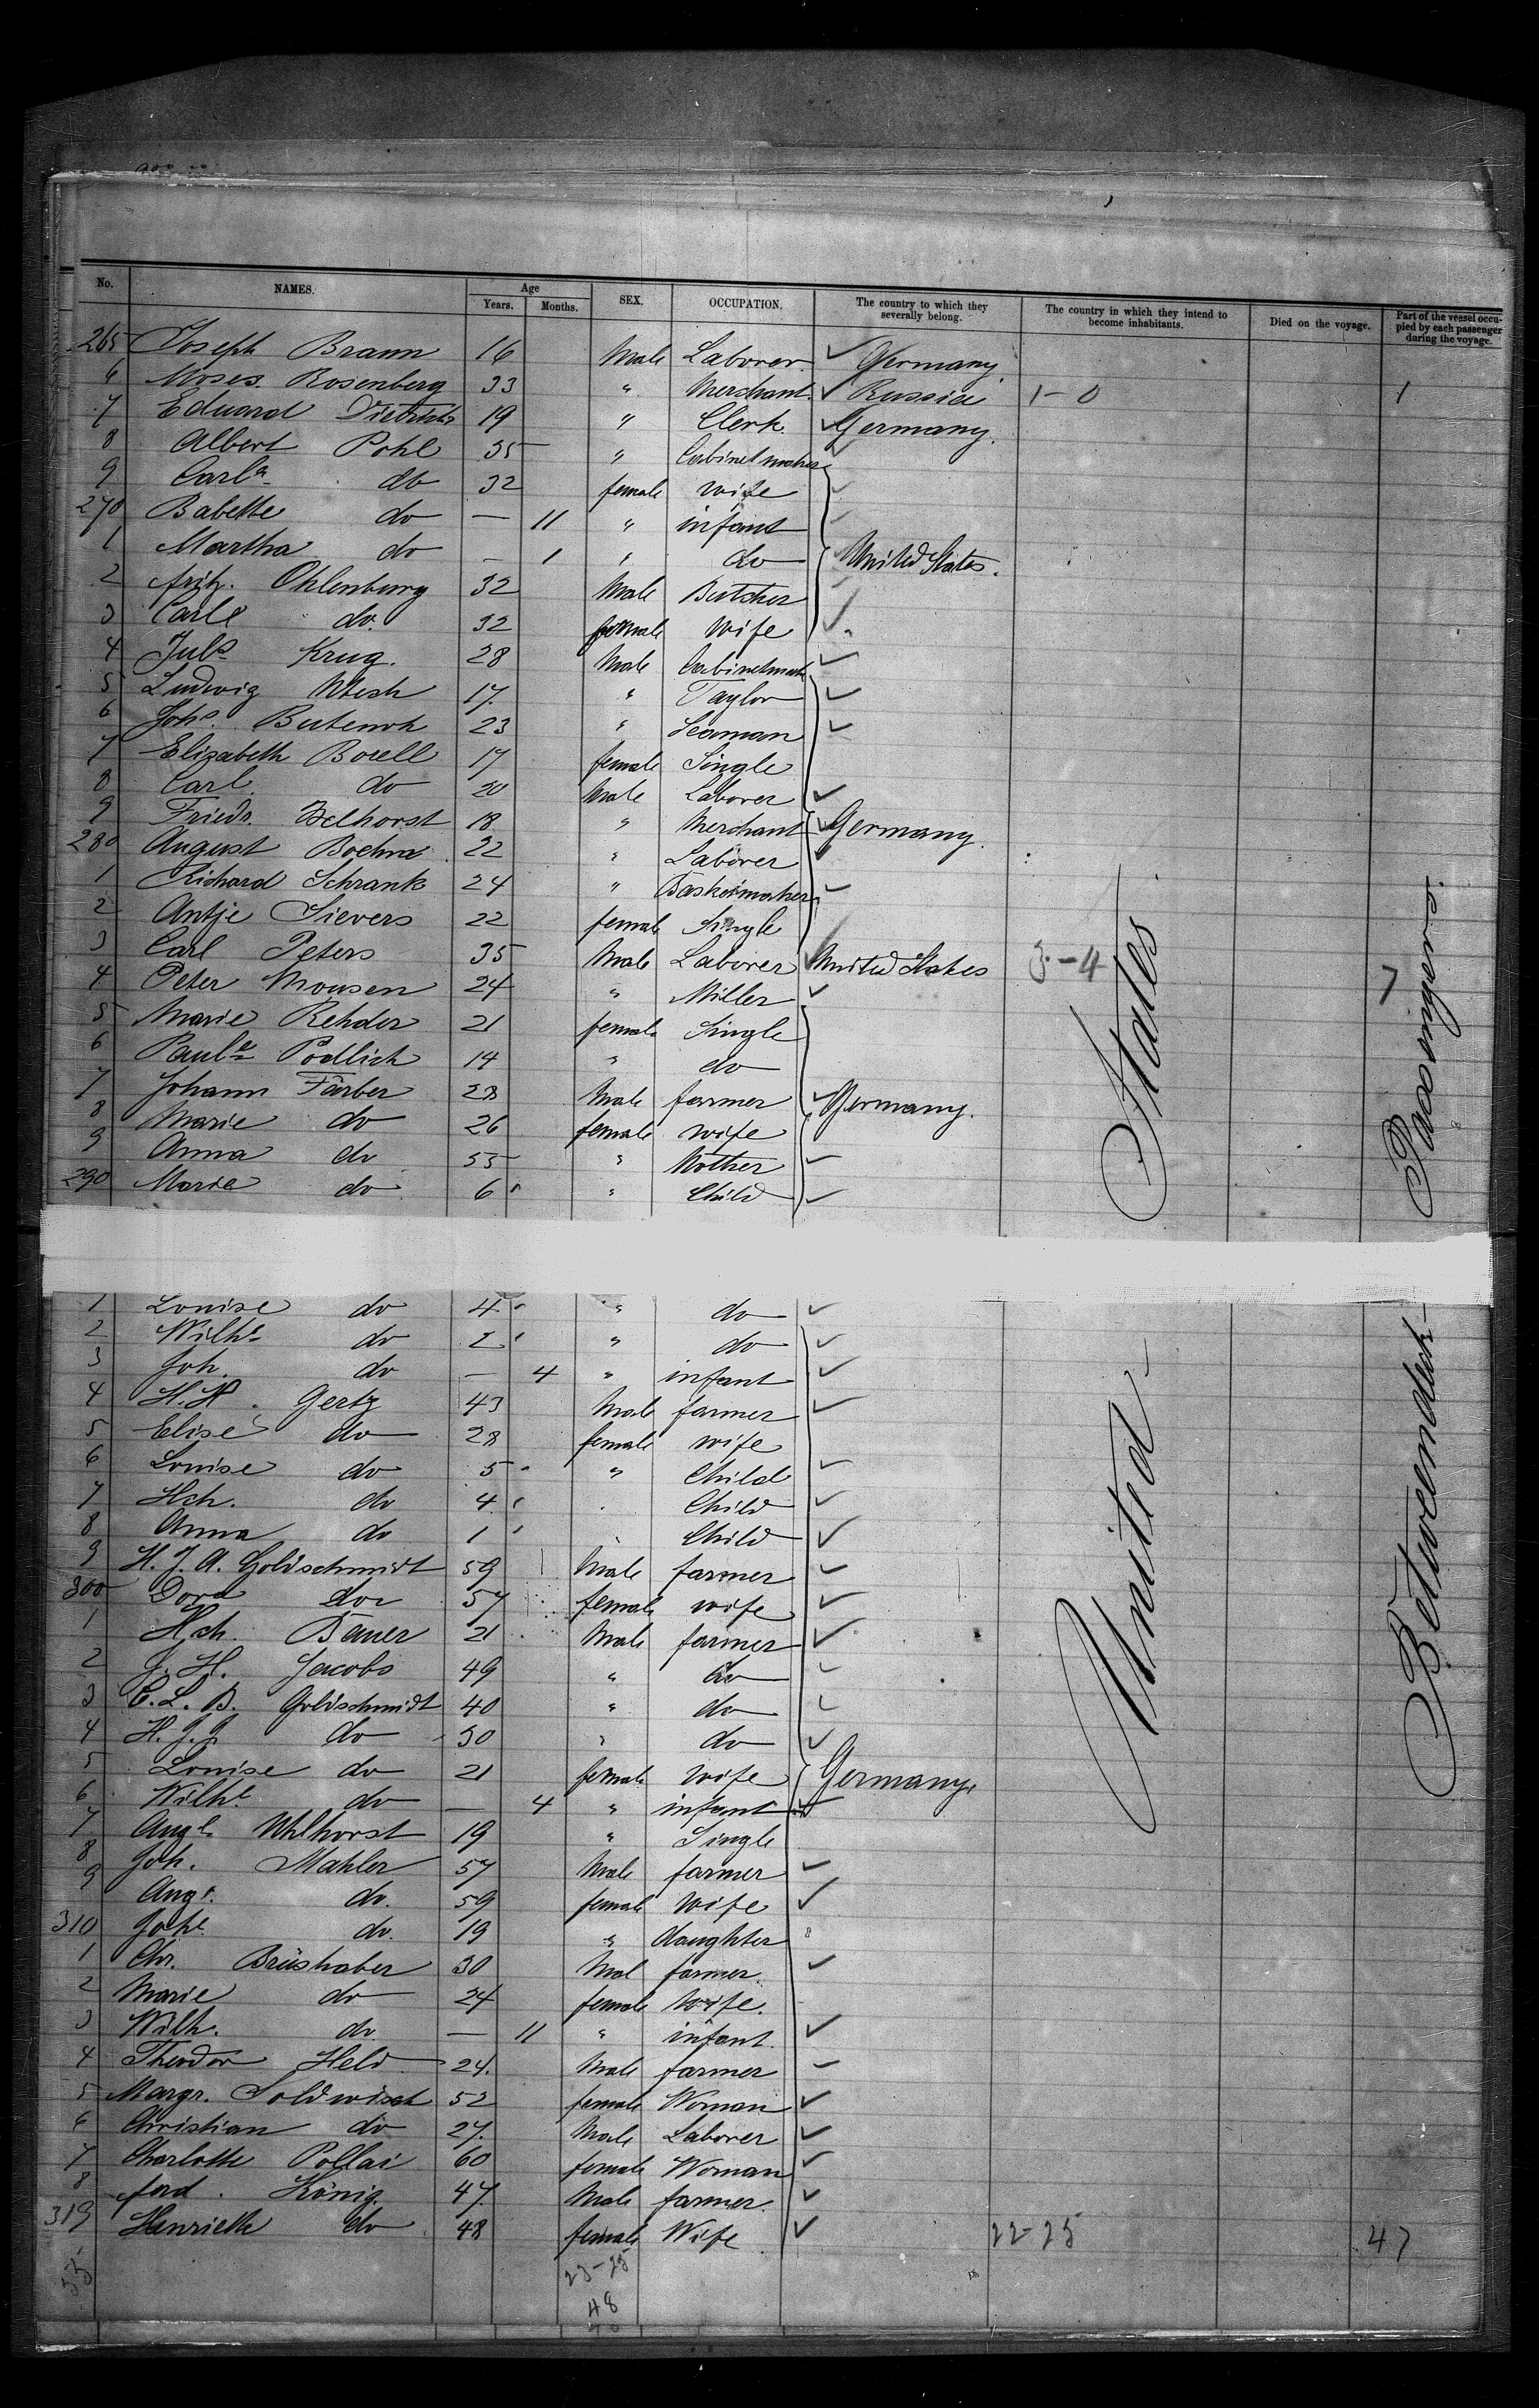 No. NAMES. Age Years. Months. SEX. OCCUPATION. The country to which they severally belong. The country in which they intend to become inhabitants. Died on the voyage. Part of the vessel occupied by each passenger during the voyage.
265 Joseph Braun 16 Male Laborer Germany
6 Moses Rosenberg 33 " Merchant Russia 1-0 1
7 Eduard Dietrichs 19 " Clerk Germany.
8 Albert Pohl 35 " Cabinetmaker
9 Carla do 32 female wife
270 Babette do — 11 " infant
1 Martha do — 1 " do United States.
2 Fritz Ohlenburg 32 Male Butcher
3 Carle do. 32 female Wife
4 Juls Krug. 28 Male Cabinetmak
5 Ludwig 17. " Taylor
6 Johs. Butenoh 23 " Seaman
7 Elizabeth Boxell 17 female Single
8 Carl do 20 Male Laborer
9 Friedr. Belhorst 18 " Merchant Germany.
280 August Boehm 22 " Laborer
1 Richard Schrank 24 " Basketmaker
2 Antje Sievers 22 female Single
3 Carl Peters 35 Male Laborer United States 3-4 7
4 Peter Mousen 24 " Miller
5 Marie Rehder 21 female Single
6 Paule Podlich 14 " do
7 Johann Färber 28 Male farmer Germany.
8 Marie do 26 female wife
9 Anna do 55 " Mother
290 Marie do 6 " Child
1 Louise do 4 " do
2 Wilhe do 2 " do
3 Joh. do — 4 " infant
4 H.H. Gertz 43 Male farmer
5 Elise do 28 female wife
6 Louise do 5 " Child
7 Hch. do 4 Child
8 Anna do 1 " Child
9 H. J. A. Goldschmidt 59 Male farmer
300 Dora do 57 female wife
1 Hch. Bauer 21 Male farmer
2 J. H. Jacobs 49 " do
3 C. L. B. Goldschmidt 40 " do
4 H. J. J. do 30 " do
5 Louise do 21 female wife Germany.
6 Wilhe do — 4 " infant
7 Auge. Uhlhorst 19 " Single
8 Joh. Mahler 57 Male farmer
9 Auge. do. 59 female wife
310 Johe do. 19 " daughter
1 Chr. Brüshaber 30 Mal farmer.
2 Marie do 24 female Wife.
3 Wilh. do. — 11 " infant.
4 Theodor Held 24. Male farmer
5 Margr. Soldwisch 52 female Woman
6 Christian do 27. Male Laborer
7 Charlotte Pollai 60 female Woman
8 ferd. König. 47. Male farmer.
319 Henriette do 48 female Wife 22-25 47
55 23-25
48
United States
Betweendeck Passengers.